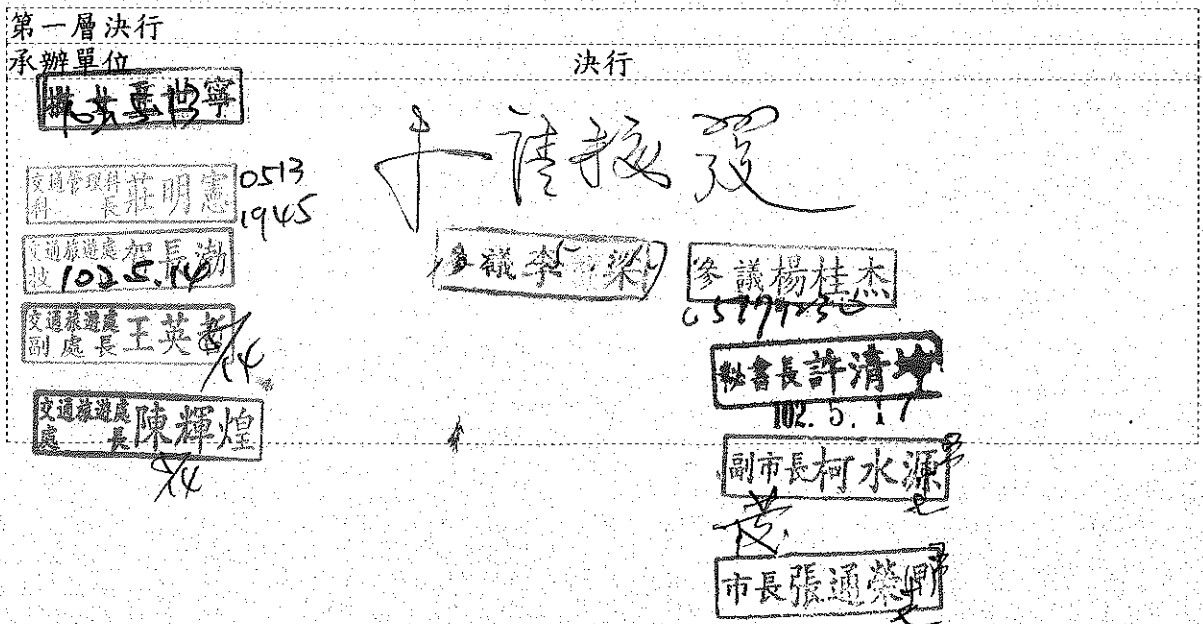 第一層決行
承辦單位
決行
寧
交通管理科
科長 莊明憲
0513
1945
交通旅遊處
技 賀長渤
102.5.14
交通旅遊處
副處長 王英哲
5/14
交通旅遊處
處長 陳輝煌
5/14
請核
參議李 梁
參議楊桂杰
秘書長許清坤
102.5.17
副市長柯水源
發
市長張通榮